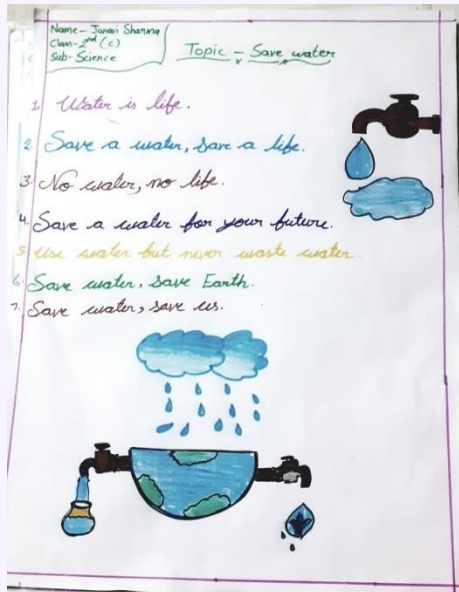 Name- Junavi Sharma
Class- 2nd (c)
Sub- Science
Topic - Save water
1. Water is life.
2. Save a water, save a life.
3. No water, no life.
4. Save a water for your future.
5. Use water but never waste water.
6. Save water, save Earth.
7. Save water, save us.